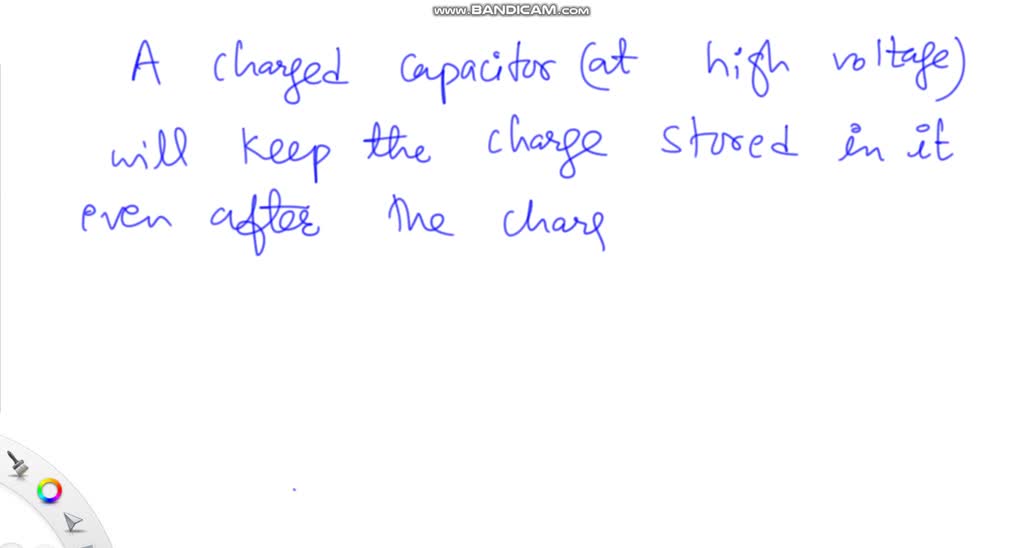 WWW.BANDICAM.COM
A charged capacitor (at high voltage)
will keep the charge stored in it
even after the charg